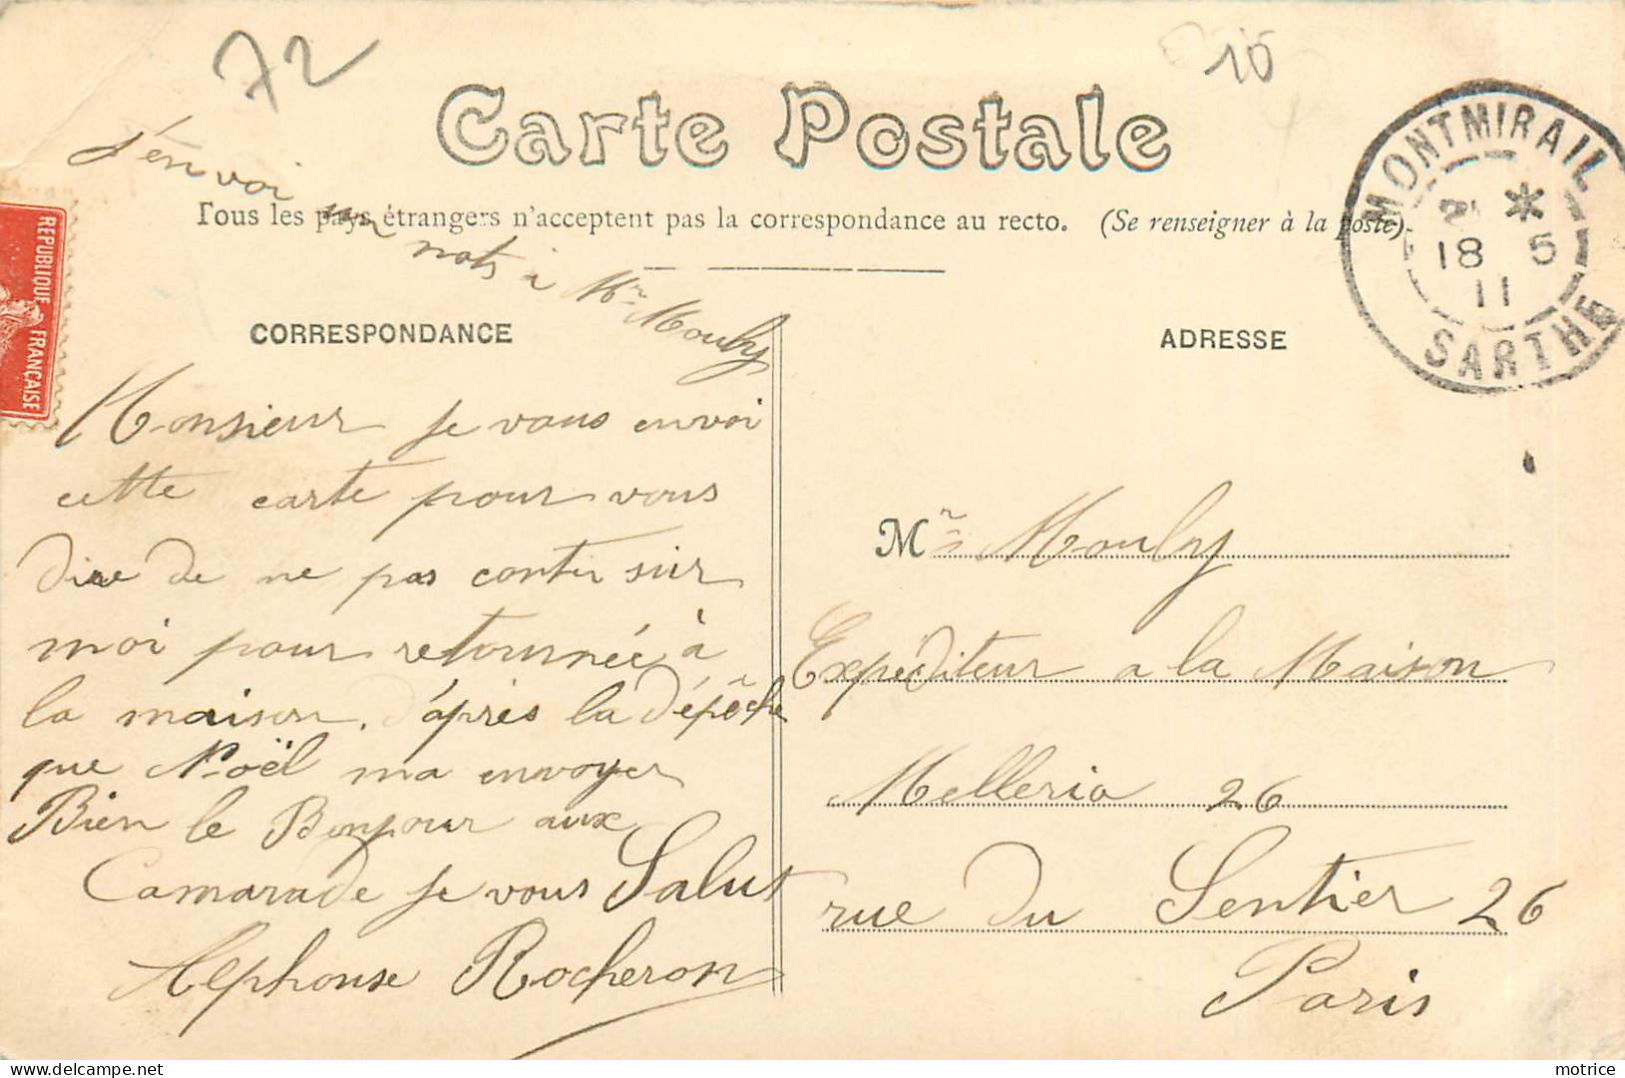 72
10
Carte Postale
Tous les pays étrangers n'acceptent pas la correspondance au recto. (Se renseigner à la poste)
MONTMIRAIL
*
18 5
11
SARTHE
REPUBLIQUE FRANÇAISE
J'én voi un mots à Mr Mouhy
CORRESPONDANCE
Monsieur je vous envoi
cette carte pour vous
dire de ne pas conter sur
moi pour retournée à
la maison. d'après la dépêche
que Noël ma envoyer
Bien le Bonjour aux
Camarade je vous Salut
Alphonse Rocheron
ADRESSE
Mr Mouhy
Expéditeur a la Maison
Mellerio 26
rue du Sentier 26
Paris
motrice